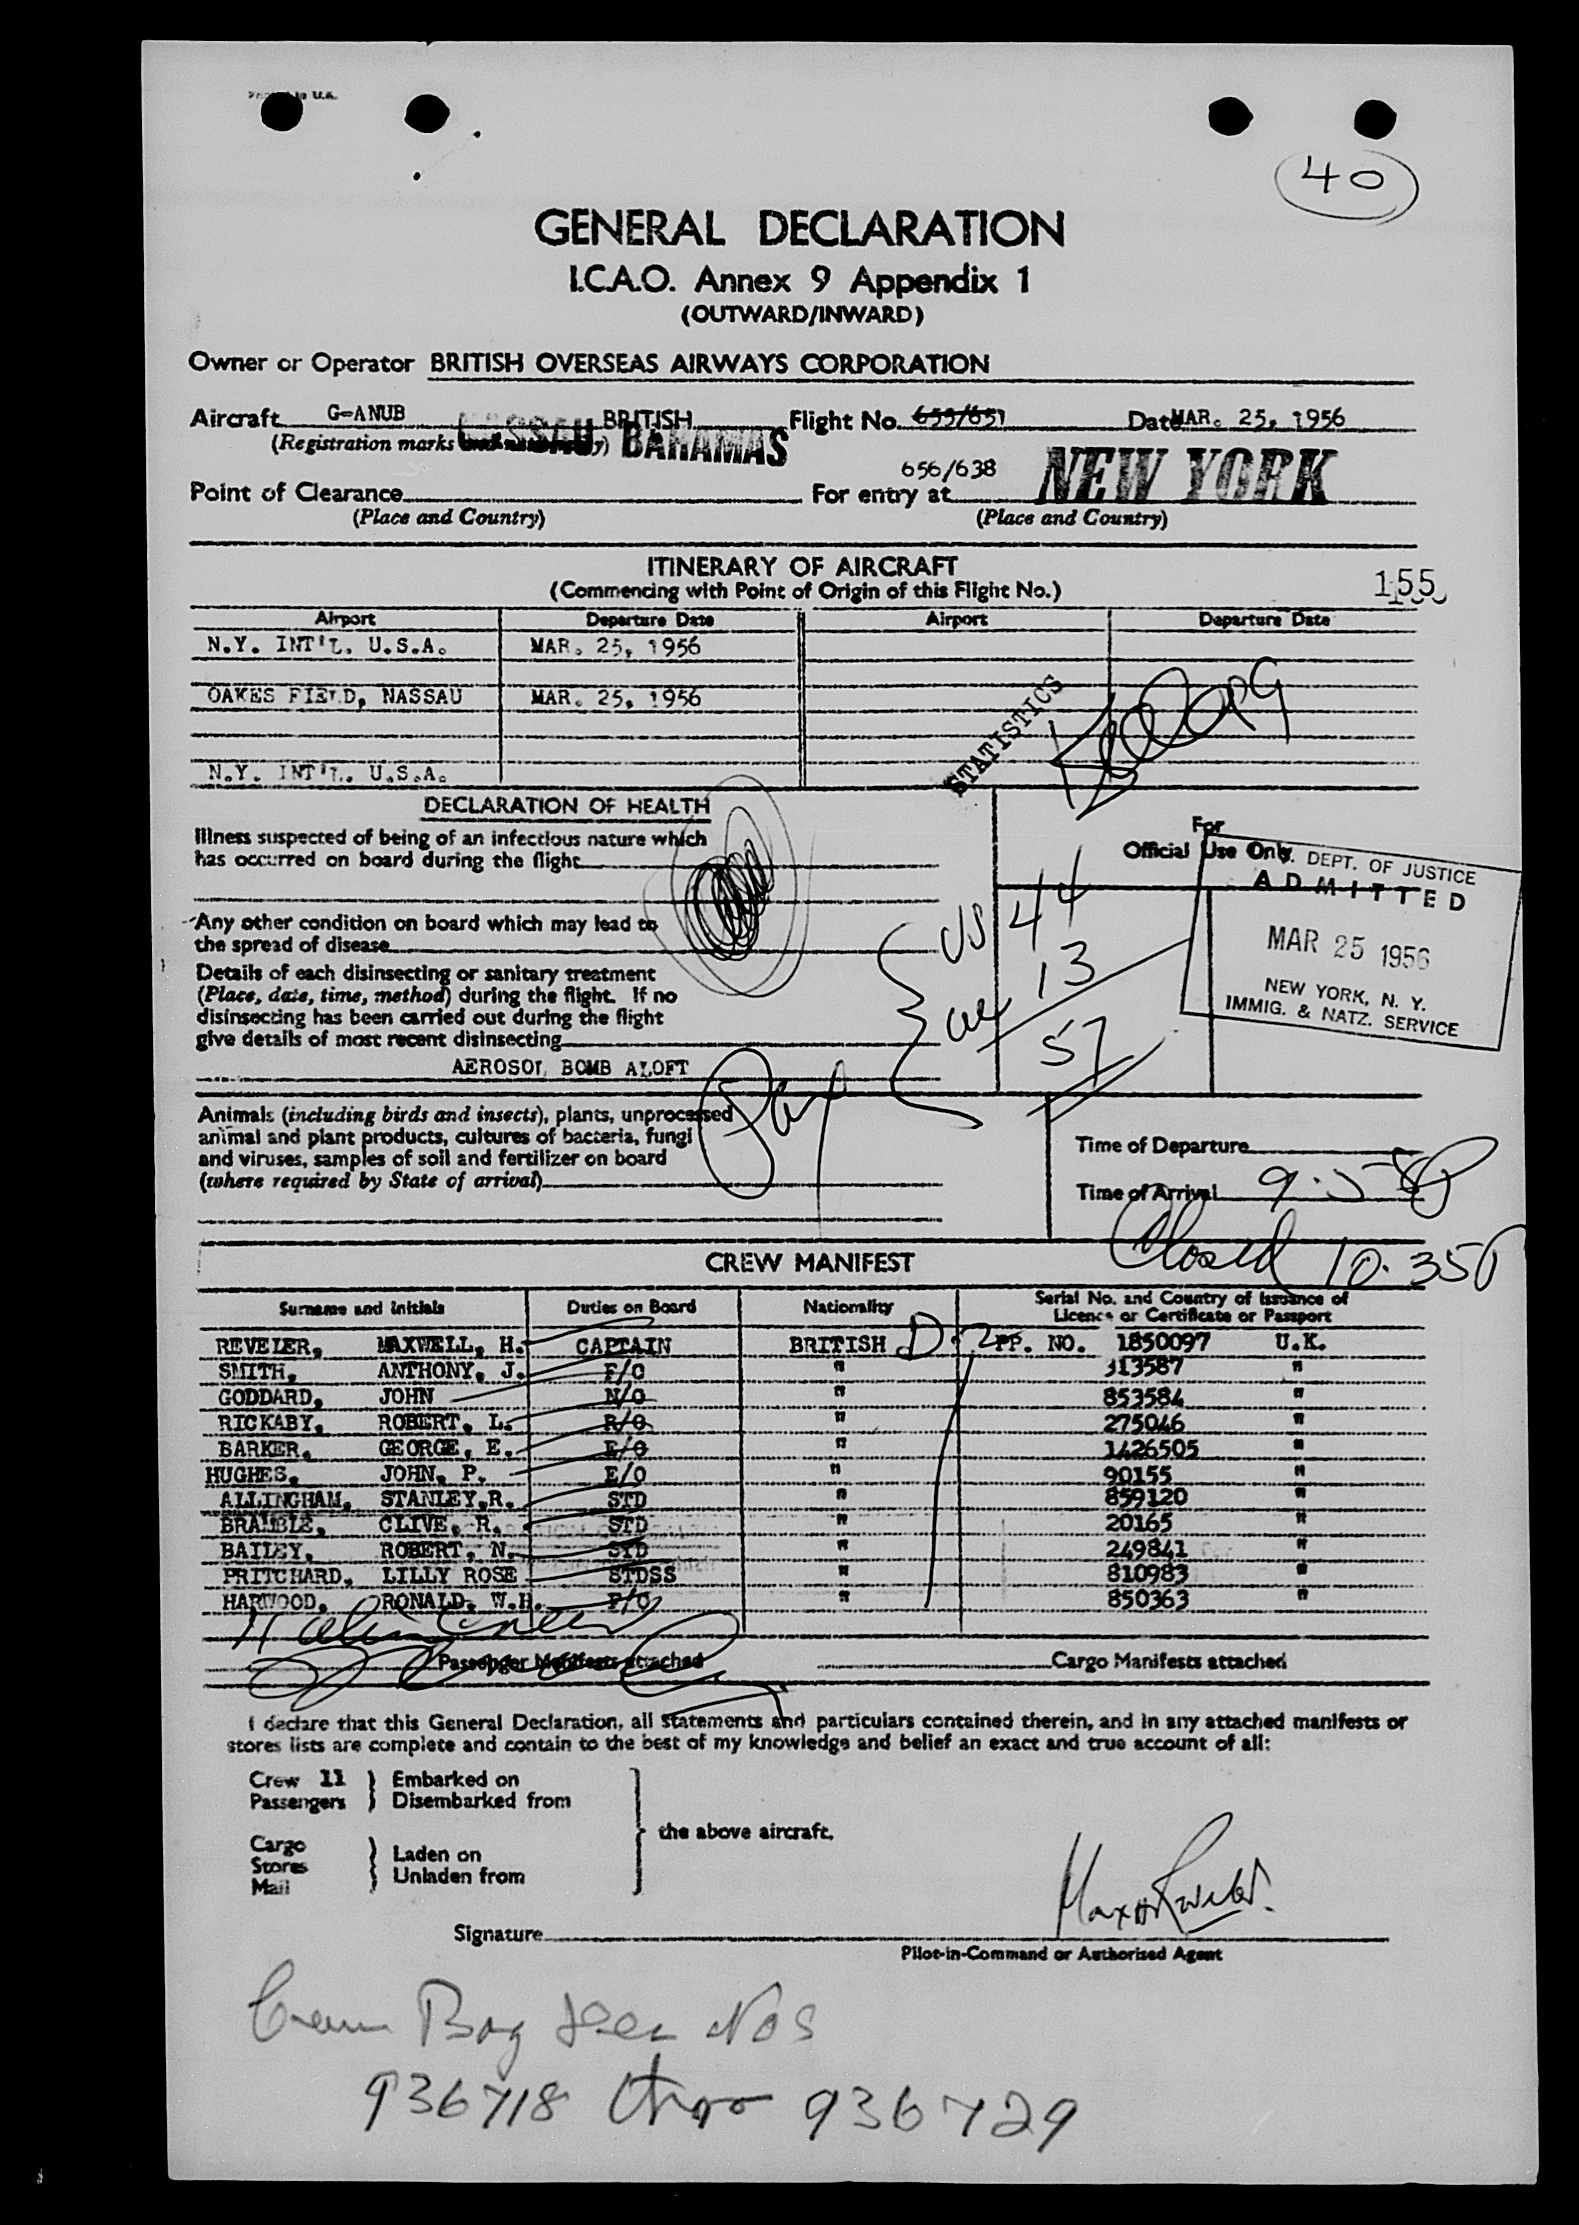 Printed in U.K.
40
GENERAL DECLARATION
I.C.A.O. Annex 9 Appendix 1
(OUTWARD/INWARD)
Owner or Operator BRITISH OVERSEAS AIRWAYS CORPORATION
Aircraft G-ANUB BRITISH Flight No. 655/651 Date MAR. 25, 1956
(Registration marks and nationality) NASSAU BAHAMAS
656/638 NEW YORK
Point of Clearance For entry at
(Place and Country) (Place and Country)
ITINERARY OF AIRCRAFT
(Commencing with Point of Origin of this Flight No.) 155
Airport Departure Date Airport Departure Date
N.Y. INT'L. U.S.A. MAR. 25, 1956
OAKES FIELD, NASSAU MAR. 25, 1956
STATISTICS
N.Y. INT'L. U.S.A.
DECLARATION OF HEALTH
Illness suspected of being of an infectious nature which
has occurred on board during the flight
For
Official Use Only
DEPT. OF JUSTICE
ADMITTED
MAR 25 1956
NEW YORK, N. Y.
IMMIG. & NATZ. SERVICE
Any other condition on board which may lead to
the spread of disease
US 44
13
57
Details of each disinsecting or sanitary treatment
(Place, date, time, method) during the flight. If no
disinsecting has been carried out during the flight
give details of most recent disinsecting
AEROSOL BOMB ALOFT
Animals (including birds and insects), plants, unprocessed
animal and plant products, cultures of bacteria, fungi
and viruses, samples of soil and fertilizer on board
(where required by State of arrival)
Time of Departure
Time of Arrival 9.58P
Closed 10.35P
CREW MANIFEST
Surname and Initials Duties on Board Nationality Serial No. and Country of Issuance of
Licence or Certificate or Passport
REVELER, MAXWELL, H. CAPTAIN BRITISH D-2 PP. NO. 1850097 U.K.
SMITH, ANTHONY, J. F/O " 313587 "
GODDARD, JOHN N/O " 853584 "
RICKABY, ROBERT, L. R/O " 275046 "
BARKER, GEORGE, E. E/O " 1426505 "
HUGHES, JOHN, P. E/O " 90155 "
ALLINGHAM, STANLEY, R. STD " 859120 "
BRAMBLE, CLIVE, R. STD " 20165 "
BAILEY, ROBERT, N. STD " 249841 "
PRITCHARD, LILLY ROSE STDSS " 810983 "
HARWOOD, RONALD, W.H. F/O " 850363 "
Passenger Manifests attached Cargo Manifests attached
I declare that this General Declaration, all statements and particulars contained therein, and in any attached manifests or
stores lists are complete and contain to the best of my knowledge and belief an exact and true account of all:
Crew 11 } Embarked on
Passengers } Disembarked from
the above aircraft.
Cargo
Stores } Laden on
Mail } Unladen from
Signature
Pilot-in-Command or Authorised Agent
Crew Bag Nos
936718 thro 936729